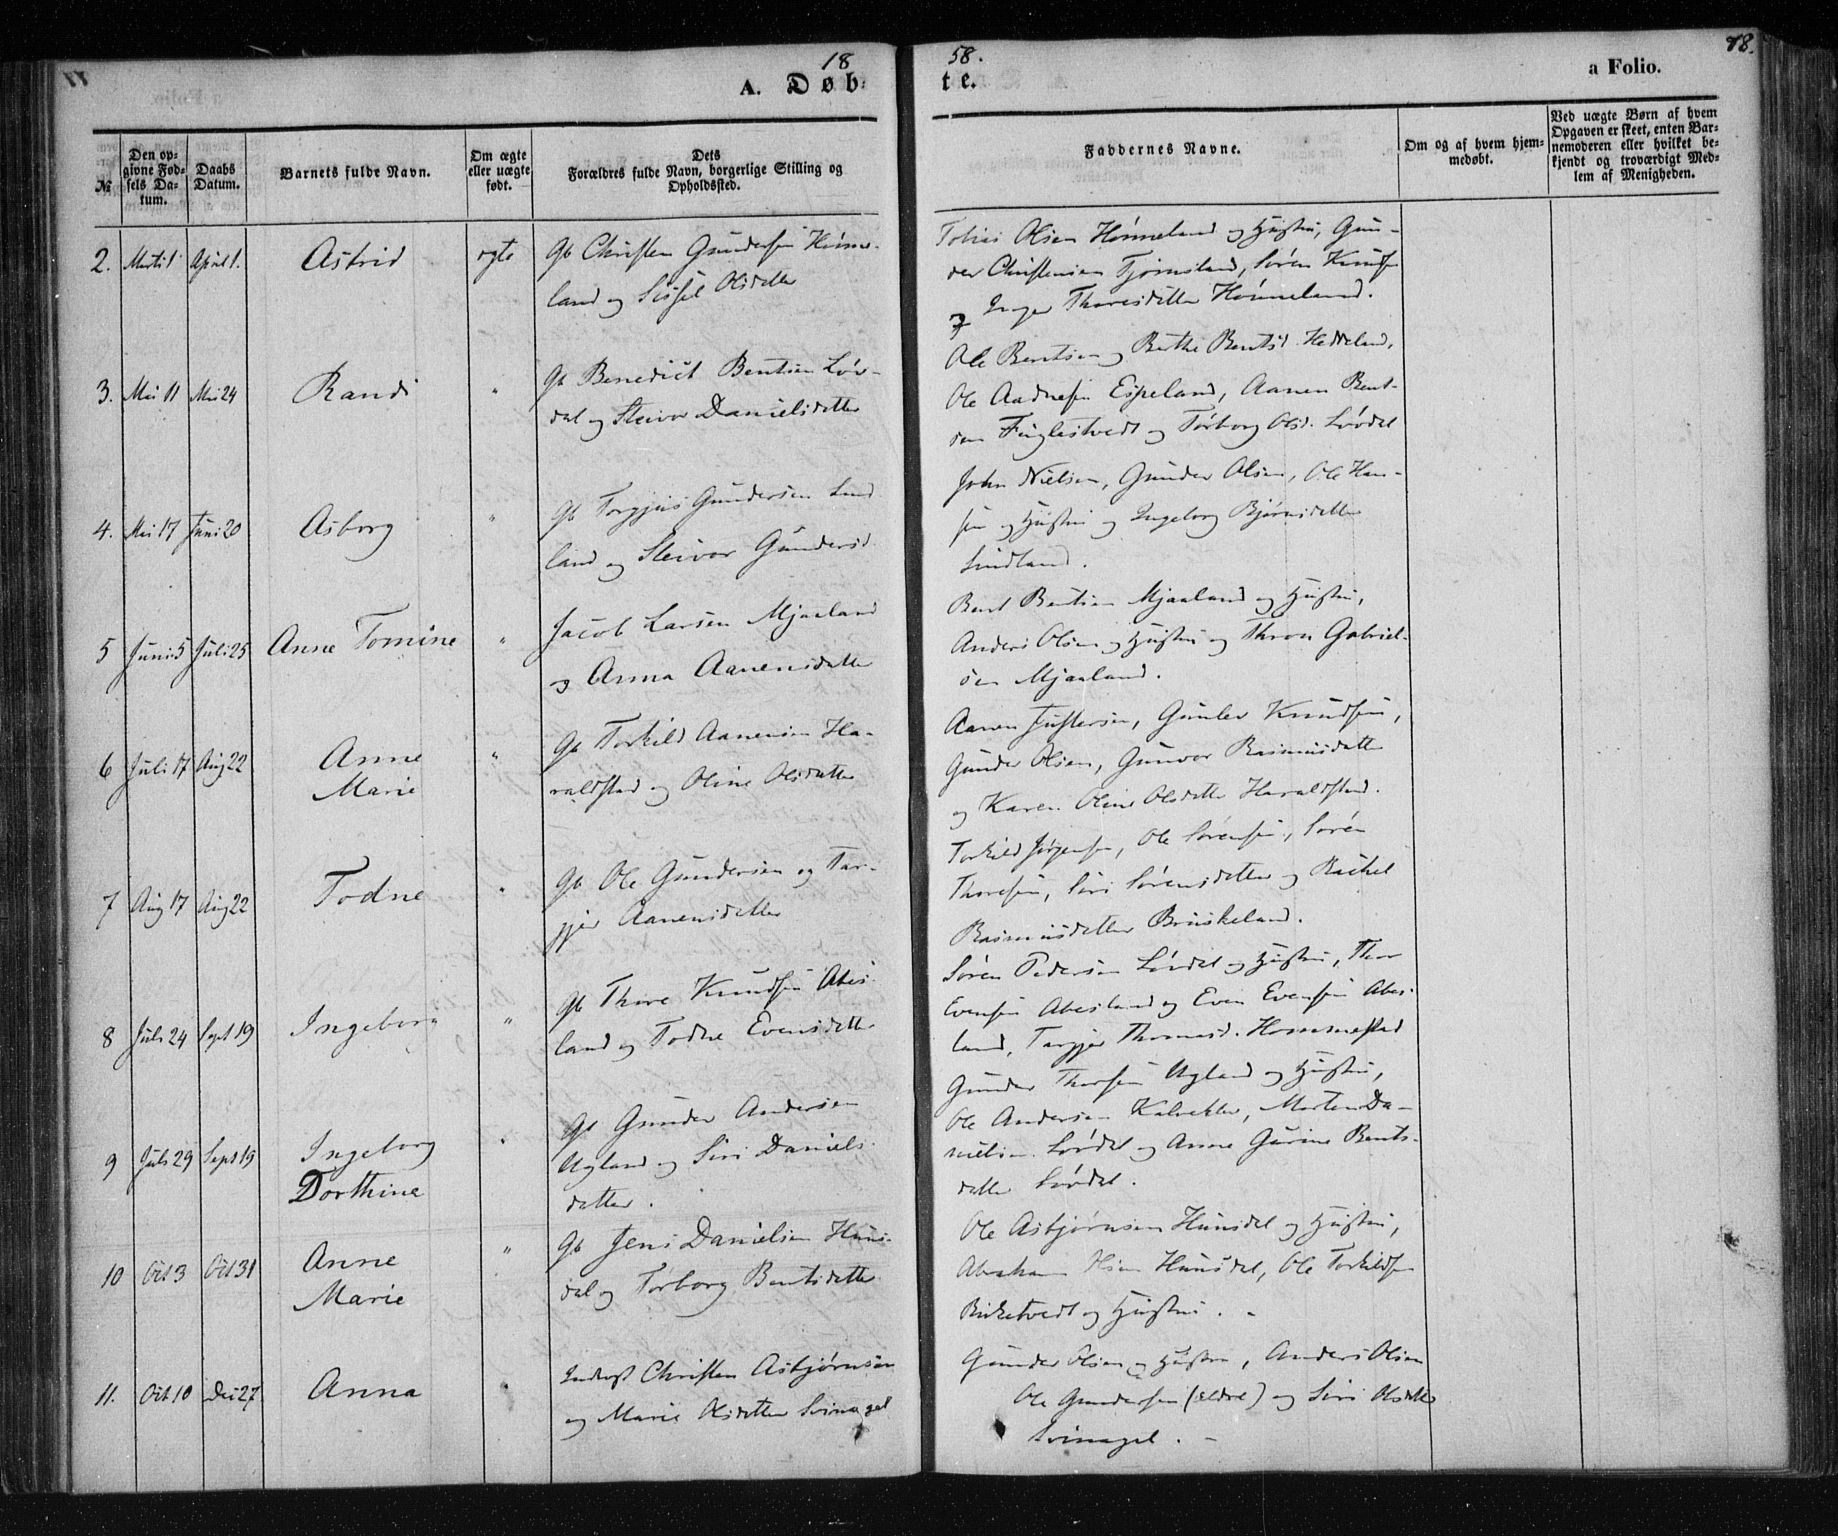 18
58.
78.
A. Døb-
te.
a Folio.
№
Den op-
givne Fød-
sels Da-
tum.
Daabs
Datum.
Barnets fulde Navn.
Om ægte
eller uægte
født.
Dets
Forældres fulde Navn, borgerlige Stilling og
Opholdssted.
Faddernes Navne.
Om og af hvem hjem-
medøbt.
Ved uægte Børn af hvem
Opgaven er skeet, enten Bar-
nemoderen eller hvilket be-
kjendt og troværdigt Med-
lem af Menigheden.
2. Marts 1 April 1. Astrid ægte Gb Christen Gundersen Hønne-
land og Sissel Olsdatter
Tobias Olsen Hønneland og Hustru, Gun-
der Christensen Tjomsland, Søren Knuds
og Inger Thoresdatter Hønneland.
3. Mai 11 Mai 24 Randi " Gb Benedict Bentsen Løv-
dal og Steivor Danielsdatter
Ole Bentsen og Berthe Bentsd. Heddeland,
Ole Aadnesen Espeland, Aanen Bent-
sen Fuglestvedt og Tørborg Olsd. Løvdal
4. Mai 17 Juni 20 Asborg " Gb Torgjus Gundersen Lind
land og Steivor Gundersd.
John Nielsen, Gunder Olsen, Ole Han-
sen og Hustru og Ingeborg Bjørnsdatter
Lindland.
5 Juni 5 Juli 25 Anne Tomine " Jacob Larsen Mjaaland
og Anna Aanensdatter
Bent Bentsen Mjaaland og Hustru,
Anders Olsen og Hustru og Thron Gabriel-
sen Mjaaland.
6 Juli 17 Aug 22 Anne
Marie " Gb Torkild Aanensen Ha-
raldstad og Oline Olsdatter
Aanen Justersen, Gunlev Knudsen,
Gunder Olsen, Gunvor Rasmusdatter
og Karen Oline Olsdatter Haraldstad.
7 Aug 17 Aug 22 Todne " Gb Ole Gundersen og Tar-
gjer Aanensdatter
Torkild Jørgensen, Ole Sørensen, Søren
Thoresen, Siri Sørensdatter og Rachel
Rasmusdatter Bruskeland.
8 Juli 24 Sept 19 Ingeborg " Gb Thore Knudsen Abes-
land og Todne Evensdatter
Søren Pedersen Løvdal og Hustru, Thor
Evensen Abesland og Even Evensen Abes-
land, Targjer Thomasd. Hommestad
9 Juli 29 Sept 19 Ingeborg
Dorthine " Gb Gunder Andersen
Uglandog Siri Daniels-
datter.
Gunder Thorsen Ugland og Hustru,
Ole Andersen Kalvehler, Morten Da-
nielsen Løvdal og Anne Gurine Bents-
datter Løvdal.
10 Oct 3 Oct 31 Anne
Marie " Gb Jens Danielsen Huns-
dal og Tørborg Bentsdatter
Ole Asbjørnsen Hunsdal og Hustru,
Abraham Olsen Hunsdal, Ole Torkildsen
Birketvedt og Hustru. -
11. Oct 10 Dec 27 Anna " Inderst Christen Asbjørnsen
og Marie Olsdatter Svinagel
Gunder Olsen og Hustru, Anders Olsen
Ole Gundersen (ældre) og Siri Olsdatter
Svinagel. -